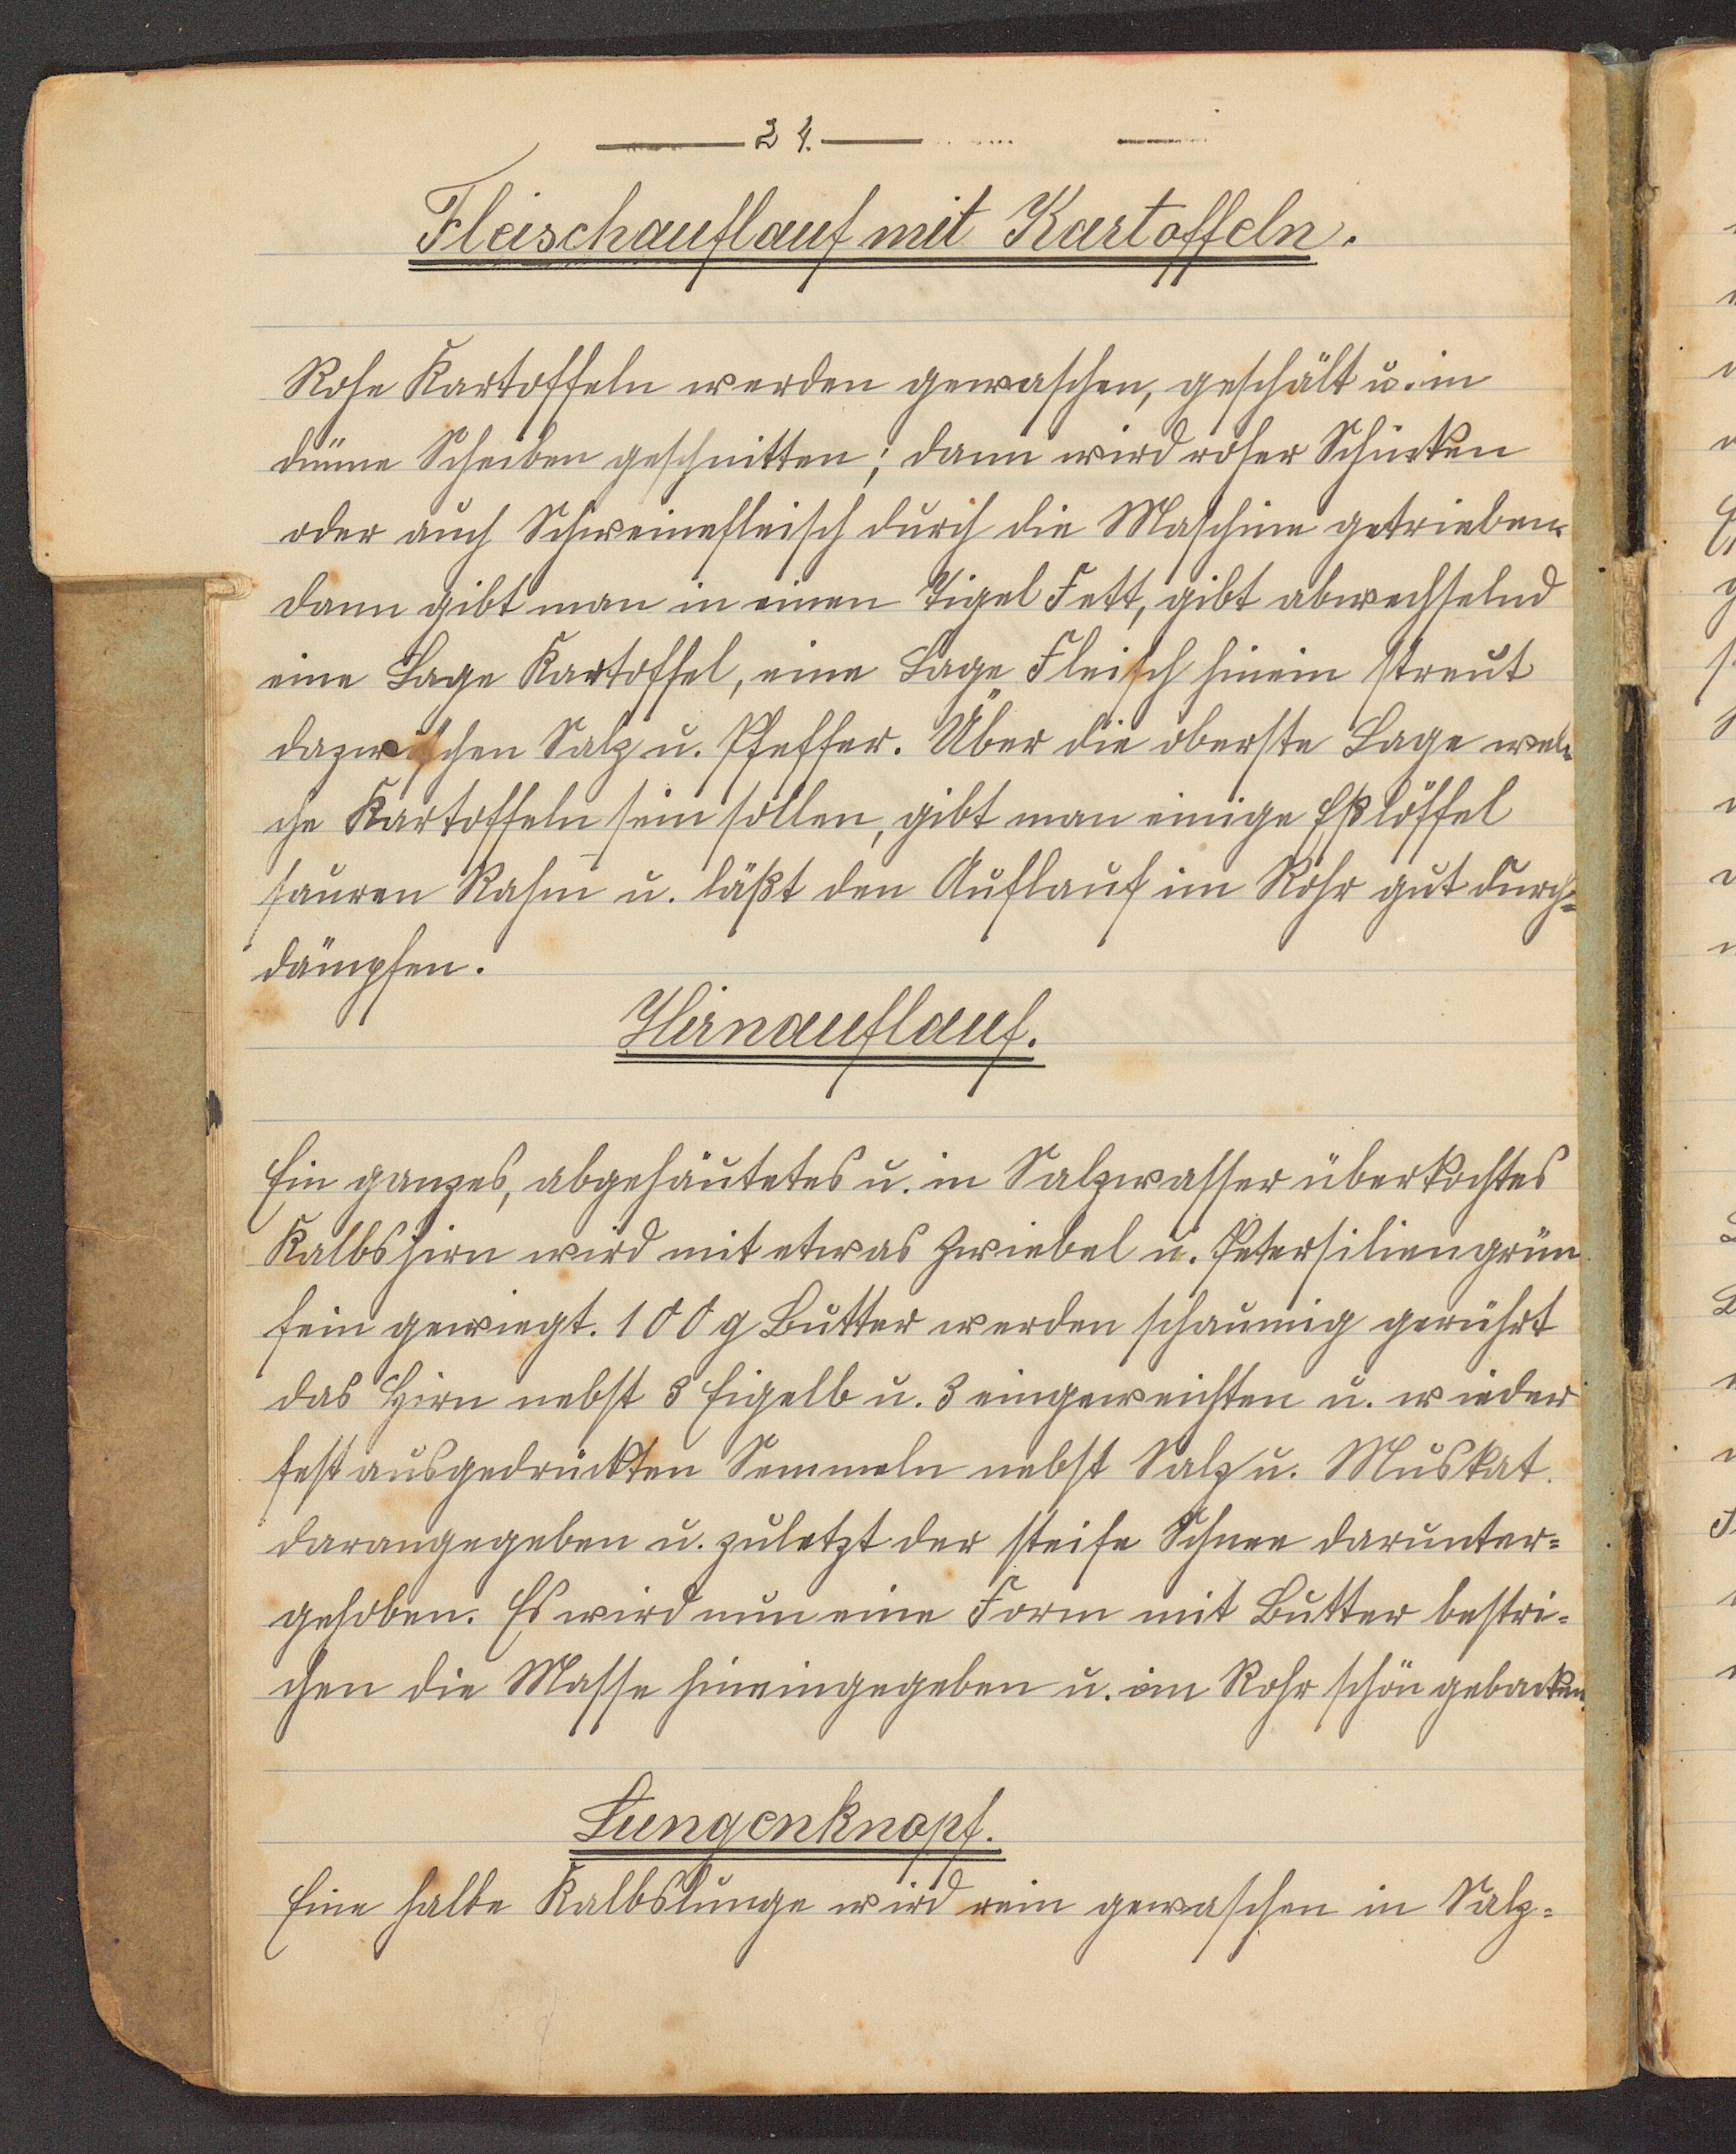 24.
Fleischauflauf mit Kartoffeln.
Rohe Kartoffeln werden gewaschen, geschält u. in
dünne Scheiben geschnitten; dann wird roher Schinken
oder auch Schweinefleisch durch die Maschine getrieben.
dann gibt man in einen Tigel Fett, gibt abwechselnd
eine Lage Kartoffel, eine Lage Fleisch hinein streut
dazwischen Salz u. Pfeffer. Über die oberste Lage wel-
che Kartoffeln sein sollen, gibt man einige Eßlöffel
sauren Rahm u. läßt den Auflauf im Rohr gut durch=
dämpfen.
Hirnauflauf.
Ein ganzes, abgehäutetes u. in Salzwasser überkochtes
Kalbshirn wird mit etwas Zwiebel u. Petersiliengrün
fein gewiegt. 100 g Butter werden schaumig gerührt
das Hirn nebst 3 Eigelb u. 3 eingeweichten u. wieder
fest ausgedrückten Semmeln nebst Salz u. Muskat.
darangegeben u. zuletzt der steife Schnee darunter=
gehoben. Es wird nun eine Form mit Butter bestri=
chen die Masse hineingegeben u. im Rohr schön gebacken.
Lungenknopf.
Eine halbe Kalbslunge wird rein gewaschen in Salz=